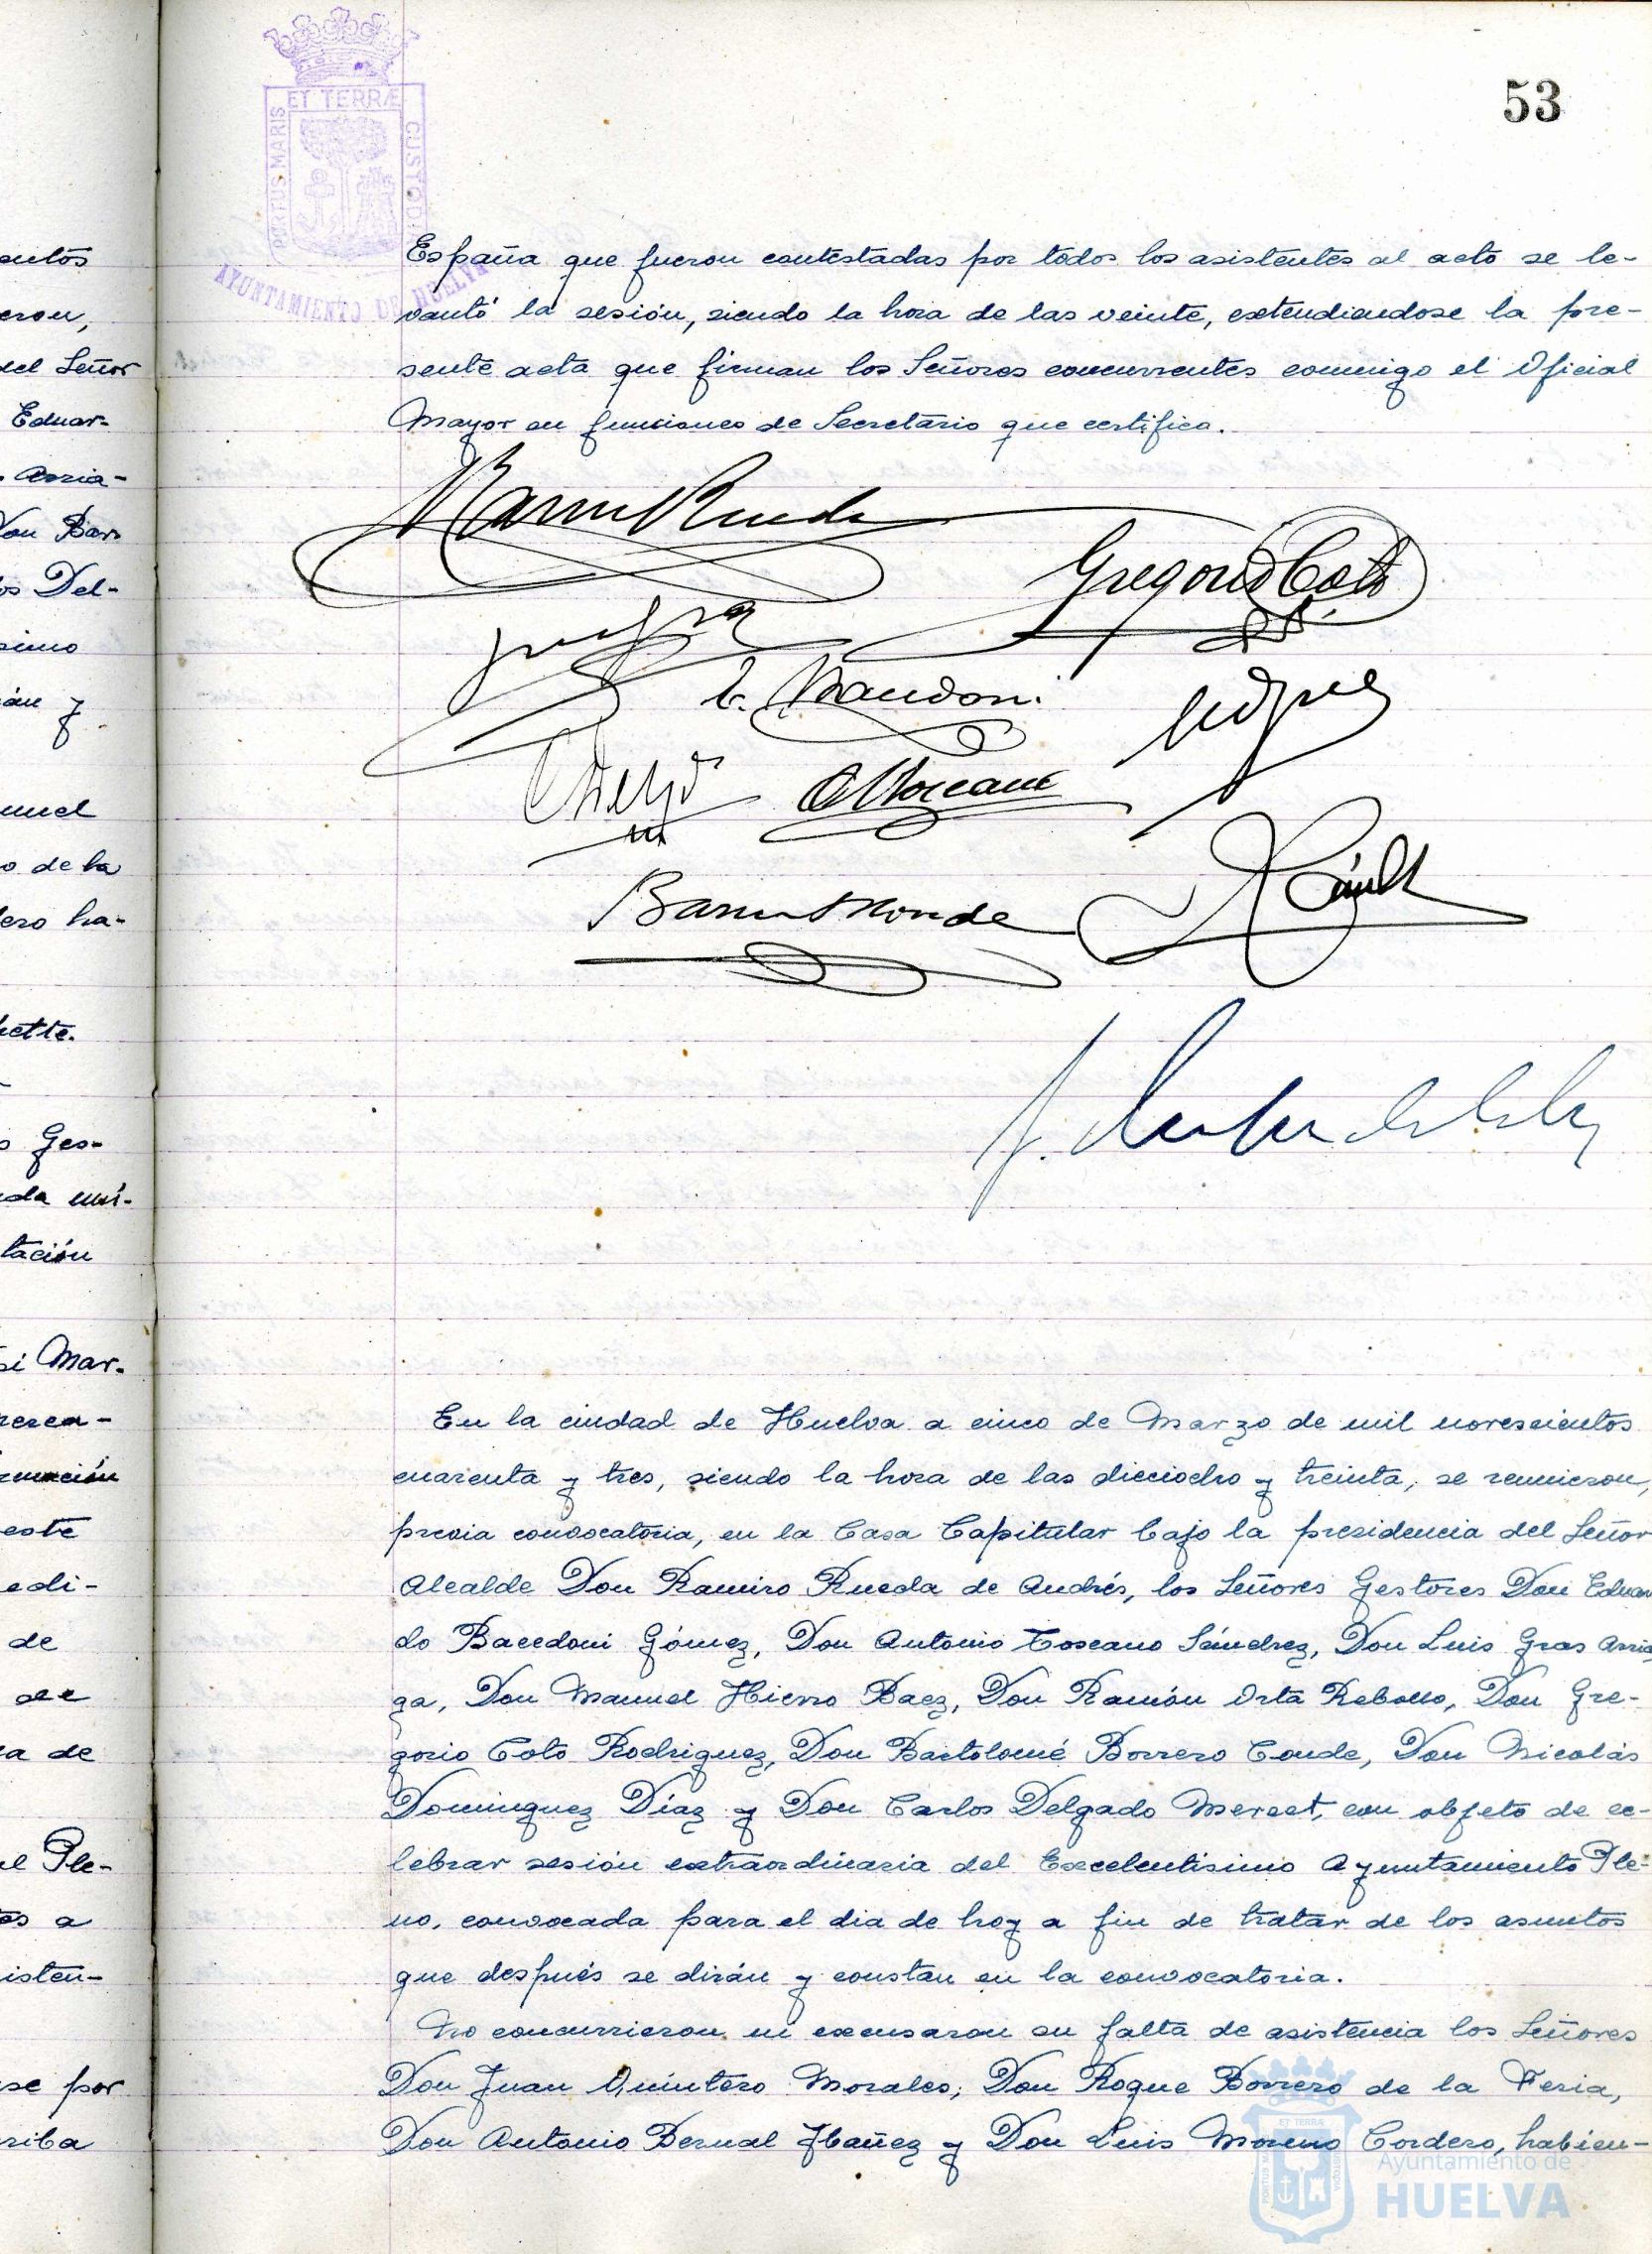 53
ET TERRÆ
PORTUS MARIS
CUSTODI
AYUNTAMIENTO DE HUELVA
España que fueron contestadas por todos los asistentes al acto se le-
vantó la sesión, siendo la hora de las veinte, extendiendose la pre-
sente acta que firman los Señores concurrentes conmigo el Oficial
Mayor en funciones de Secretario que certifico.
Ramiro Rueda
Gregorio Coto
Borrero Conde
En la ciudad de Huelva a cinco de Marzo de mil novescientos
cuarenta y tres, siendo la hora de las dieciocho y treinta, se reunieron,
previa convocatoria, en la Casa Capitular bajo la presidencia del Señor
Alcalde Don Ramiro Rueda de Andrés, los Señores Gestores Don Eduar
do Bacedoni Gómez, Don Antonio Toscano Sánchez, Don Luis Gras Arria
ga, Don Manuel Hierro Baez, Don Ramón Orta Rebollo, Don Gre-
gorio Coto Rodriguez, Don Bartolomé Borrero Conde, Don Nicolás
Dominguez Díaz y Don Carlos Delgado Mercet, con objeto de ce-
lebrar sesión extraordinaria del Excelentisimo Ayuntamiento Ple-
no, convocada para el dia de hoy a fin de tratar de los asuntos
que después se dirán y constan en la convocatoria.
No concurrieron ni excusaron su falta de asistencia los Señores
Don Juan Quintero Morales, Don Roque Borrero de la Feria,
Don Antonio Bernal Ibañez y Don Luis Moreno Cordero, habien-
Ayuntamiento de
HUELVA
erou,
del Señor
Eduar-
Arria-
Don Bar
os Del-
simo
án y
nuel
o de la
dero ha-
Ges-
tación
si Mar-
este
edi-
de
a de
el Ple-
os a
isten-
se por
riba